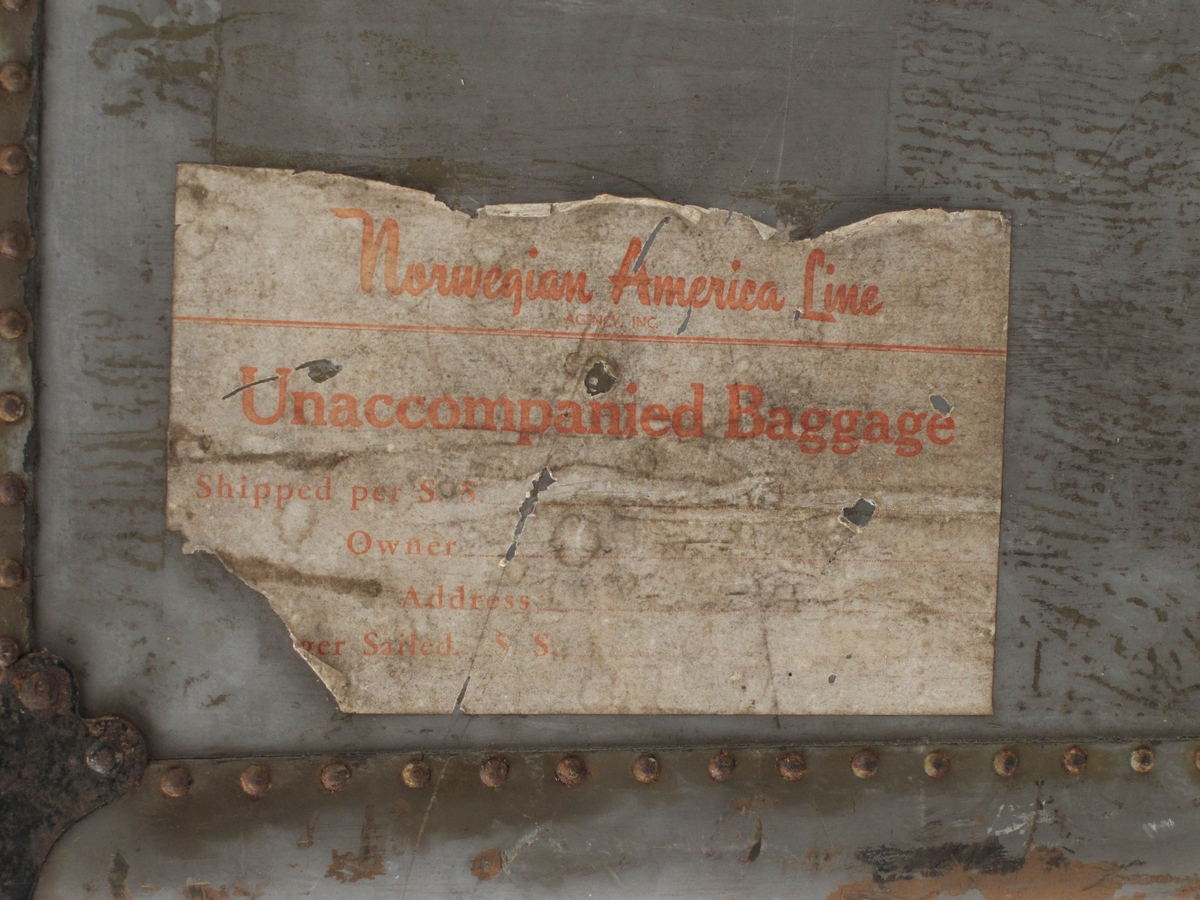 Norwegian America Line
AGENCY, INC.
Unaccompanied Baggage
Shipped per S. S
Owner
Address
ger Sailed. S. S.